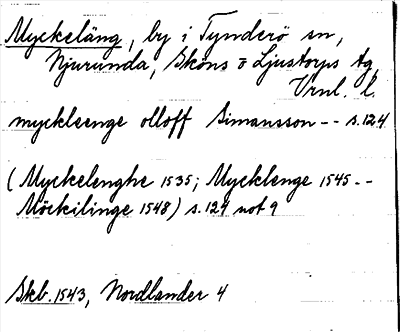 Myckeläng, by i Tynderö sn,
Njurunda, Sköns o Ljustorps tg,
Vrnl. l.
myckleenge olloff Simansson -- s.124
(Myckelenghe 1535; Mycklenge 1545 --
Möckilinge 1548) s. 124 not 9
Skb. 1543, Nordlander 4